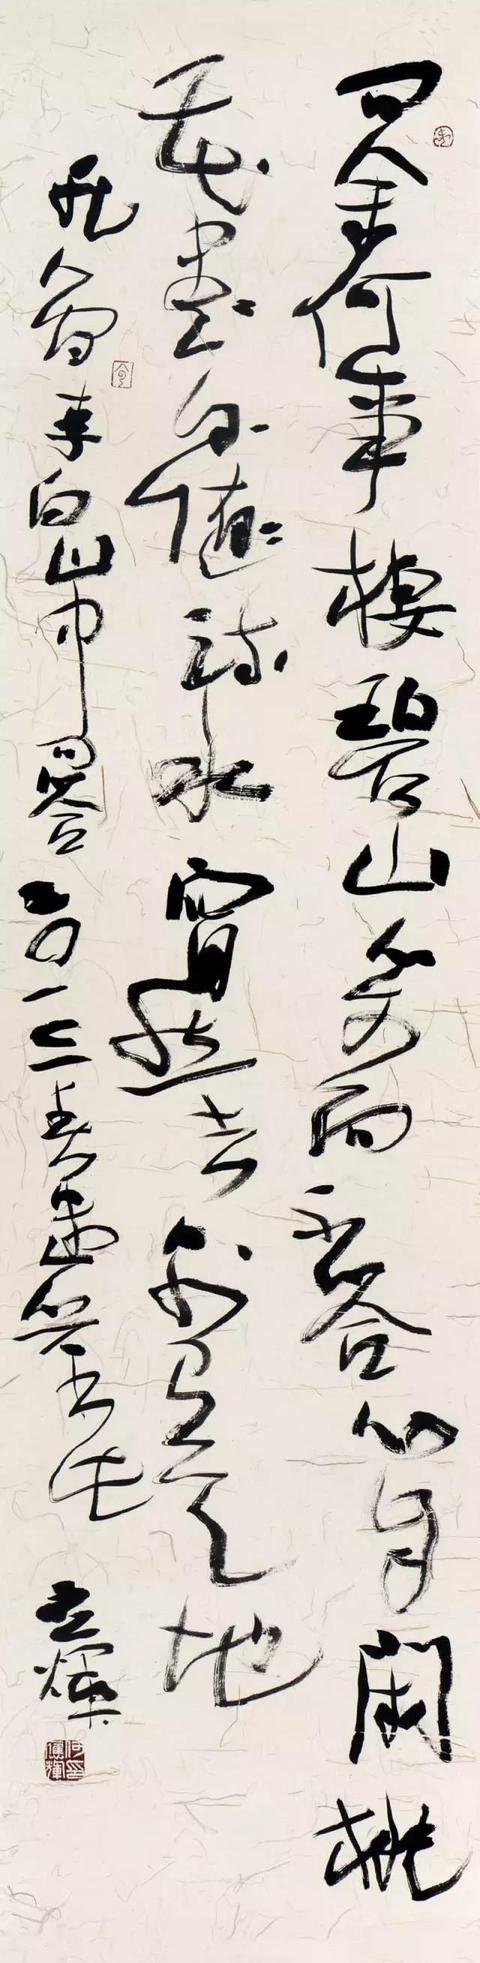 问余何事棲碧山笑而不答心自闲桃
花盡随流水窅然去别有天地
非人间李白山中问答二〇一三春